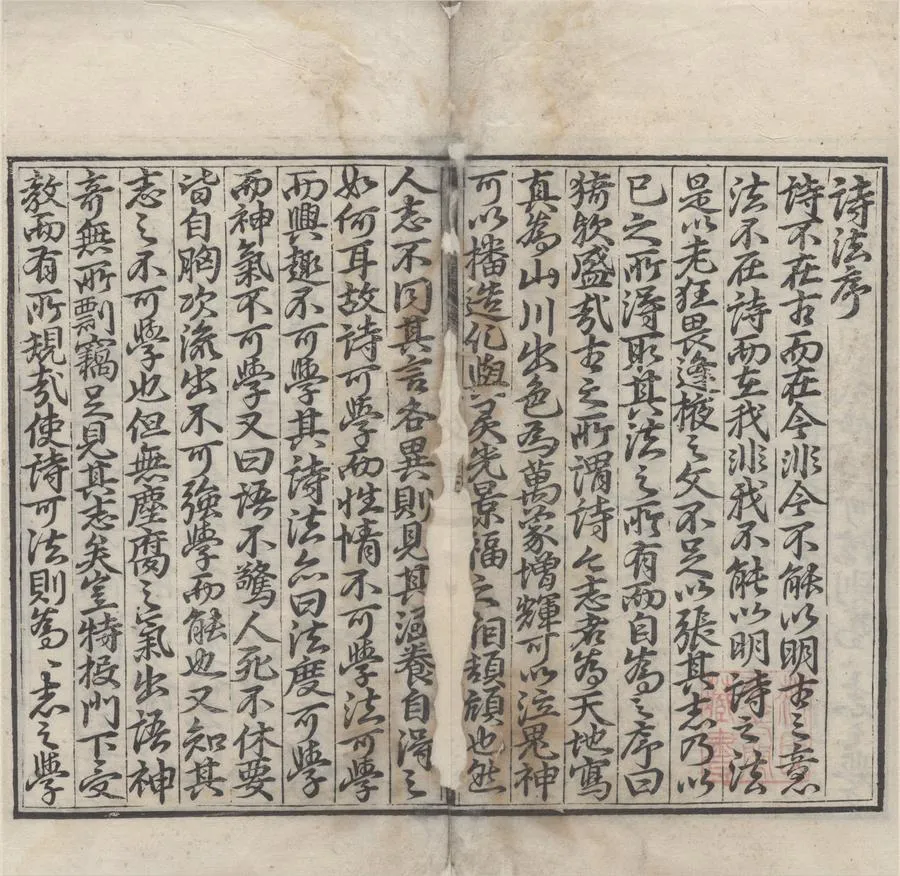 詩法序
詩不在古而在今非今不能以明古之意
法不在詩而在我非我不能以明詩之法
是以老狂畏逢掖之文不足以張其志乃以
已之所得取其法之所有而自為之序曰
猗歟盛哉古之所謂詩言志者為天地寫
真為山川出色為萬象增輝可以泣鬼神
可以播造化與光景福之頹也然
人志不同其言各異則見其涵養自得之
如何耳故詩可學而性情不可學法可學
而興趣不可學其詩法亦曰法度可學
而神氣不可學又曰語不驚人死不休要
皆自胸次流出不可強學而能也又知其
志之不可學也但無塵腐之氣出語神
奇無所剽竊足見其志矣豈特授門下受
教而有所規哉使詩可法則為志之學